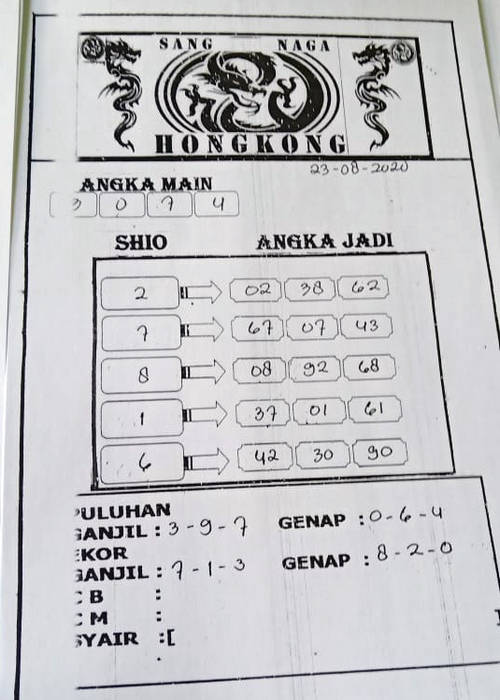 SANG NAGA
HONGKONG
23-08-2020
ANGKA MAIN
3 0 7 4
SHIO ANGKA JADI
2 02 38 62
7 67 07 43
8 08 92 68
1 37 01 61
6 42 30 90
PULUHAN
GANJIL : 3-9-7 GENAP : 0-6-4
EKOR
GANJIL : 7-1-3 GENAP : 8-2-0
C B :
C M :
SYAIR :[